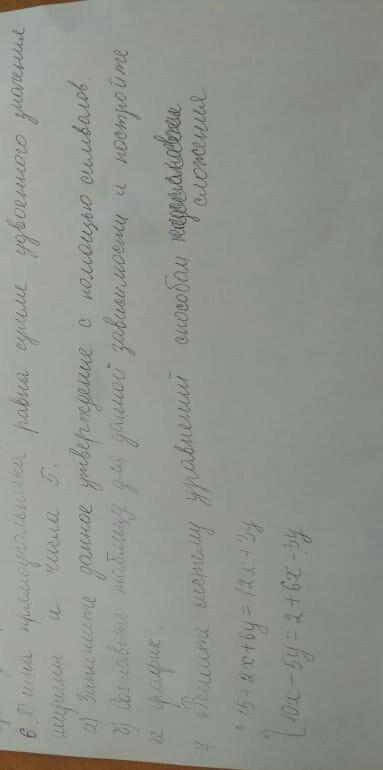 6. Длина прямоугольника равна сумме удвоенного значения
ширины и числа 5.
а) Запишите данное утверждение с помощью символов.
б) Составьте таблицу для данной зависимости и постройте
ее график.
7. Решите систему уравнений способом
сложения
{ 15+2x+6y=12x+3y
10x-5y=2+6x-3y